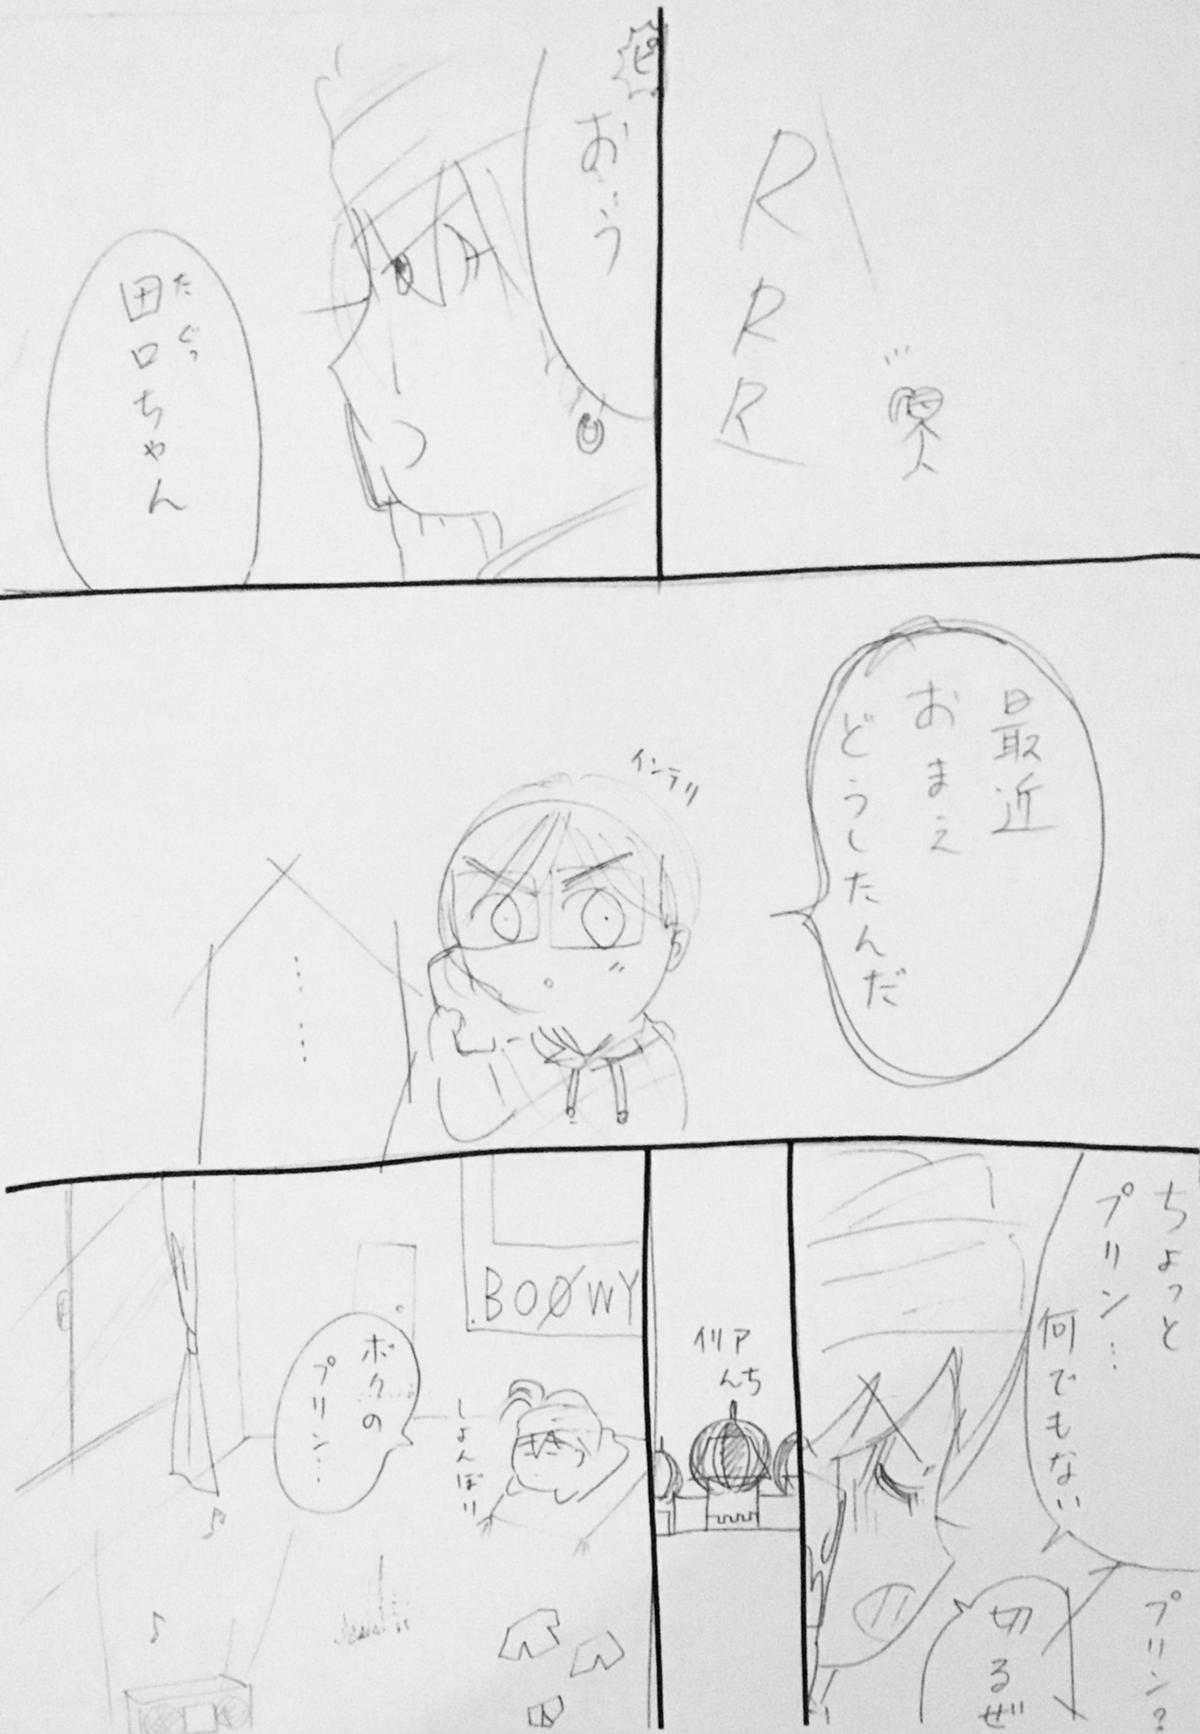 RRR
ピ
おぅ
田口ちゃん
たぐっ
最近
おまえ
どうしたんだ
インテリ
……
ちょっと
プリン…
何でもない
プリン?
切るぜ
アイリ
んち
BOØWY
ボクの
プリン…
しょんぼり